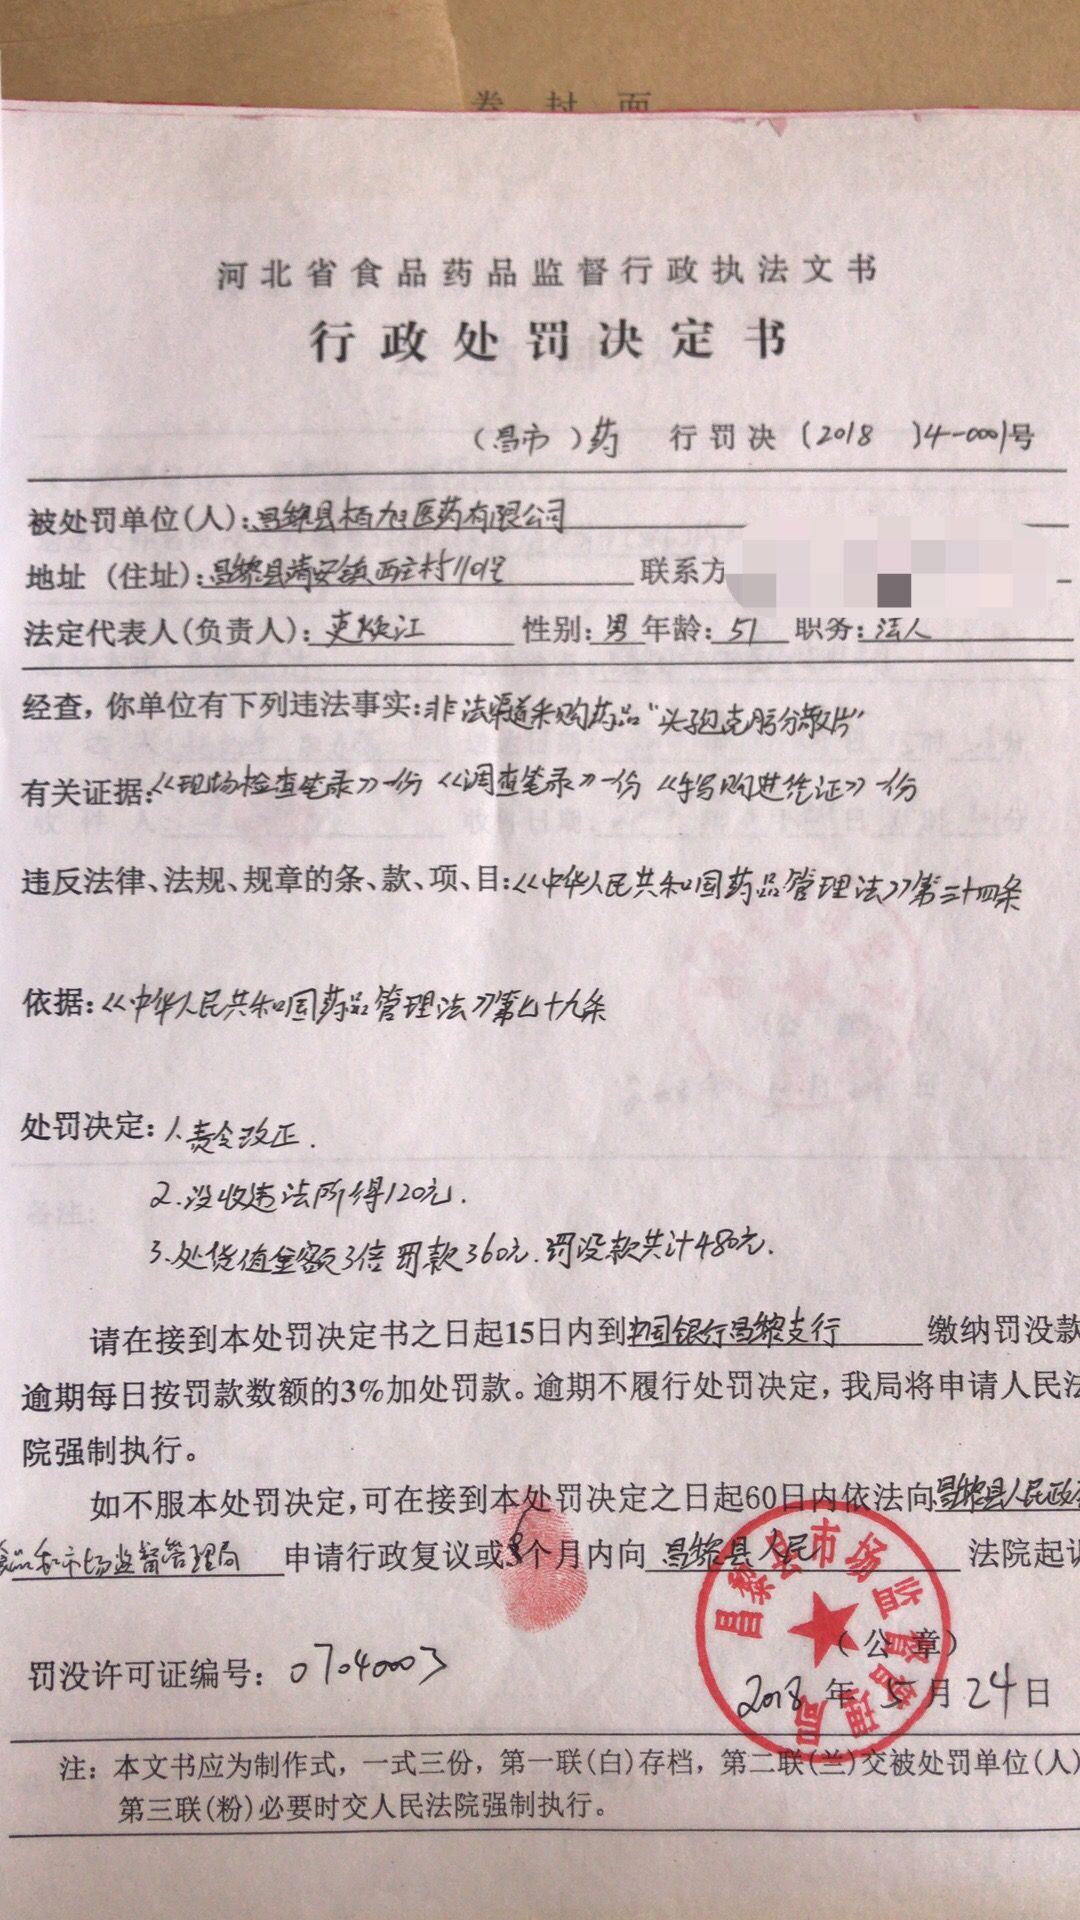 卷 封 面
河北省食品药品监督行政执法文书
行政处罚决定书
（昌市 ）药 行罚决〔2018 〕4-0001号
被处罚单位(人)：昌黎县栢旭医药有限公司
地址 (住址)：昌黎县靖安镇西庄村110号
联系方
法定代表人(负责人)：江 性别：男 年龄：51 职务：法人
经查，你单位有下列违法事实：非法渠道采购药品“头孢克肟分散片”
有关证据：《现场检查笔录》一份《调查笔录》一份《购进凭证》一份
违反法律、法规、规章的条、款、项、目：《中华人民共和国药品管理法》第三十四条
依据：《中华人民共和国药品管理法》第七十九条
处罚决定：1.责令改正.
2.没收违法所得120元.
3.处货值金额3倍罚款360元.罚没款共计480元.
请在接到本处罚决定书之日起15日内到中国银行昌黎支行 缴纳罚没款
逾期每日按罚款数额的3%加处罚款。逾期不履行处罚决定，我局将申请人民法
院强制执行。
如不服本处罚决定，可在接到本处罚决定之日起60日内依法向昌黎县人民政
品和市场监督管理局 申请行政复议或个月内向 昌黎县人民 法院起诉
昌黎县市场监督管理局
（公 章）
罚没许可证编号：07040003
2018 年 5 月 24 日
注：本文书应为制作式，一式三份，第一联(白)存档，第二联(兰)交被处罚单位(人)
第三联(粉)必要时交人民法院强制执行。